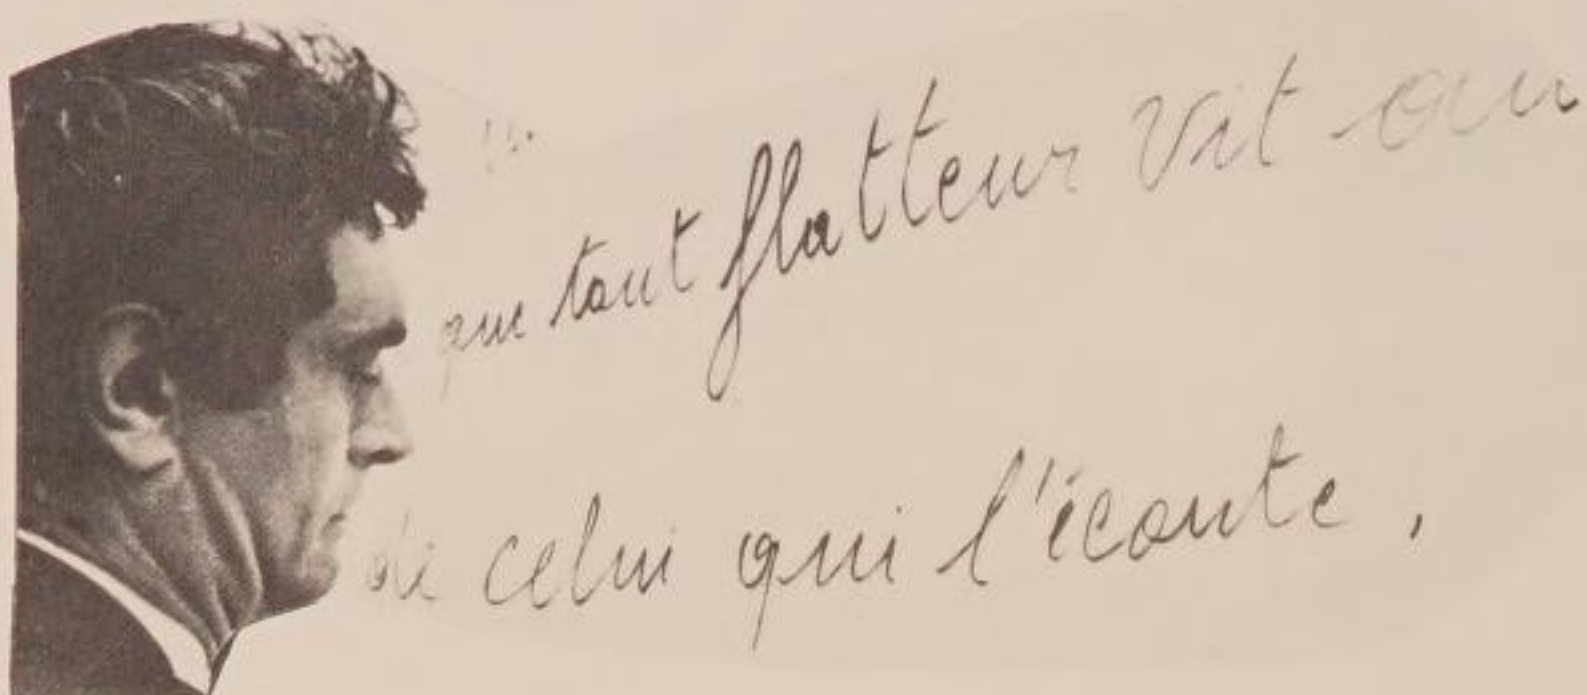 que tout flatteur vit au
de celui qui l'écoute,